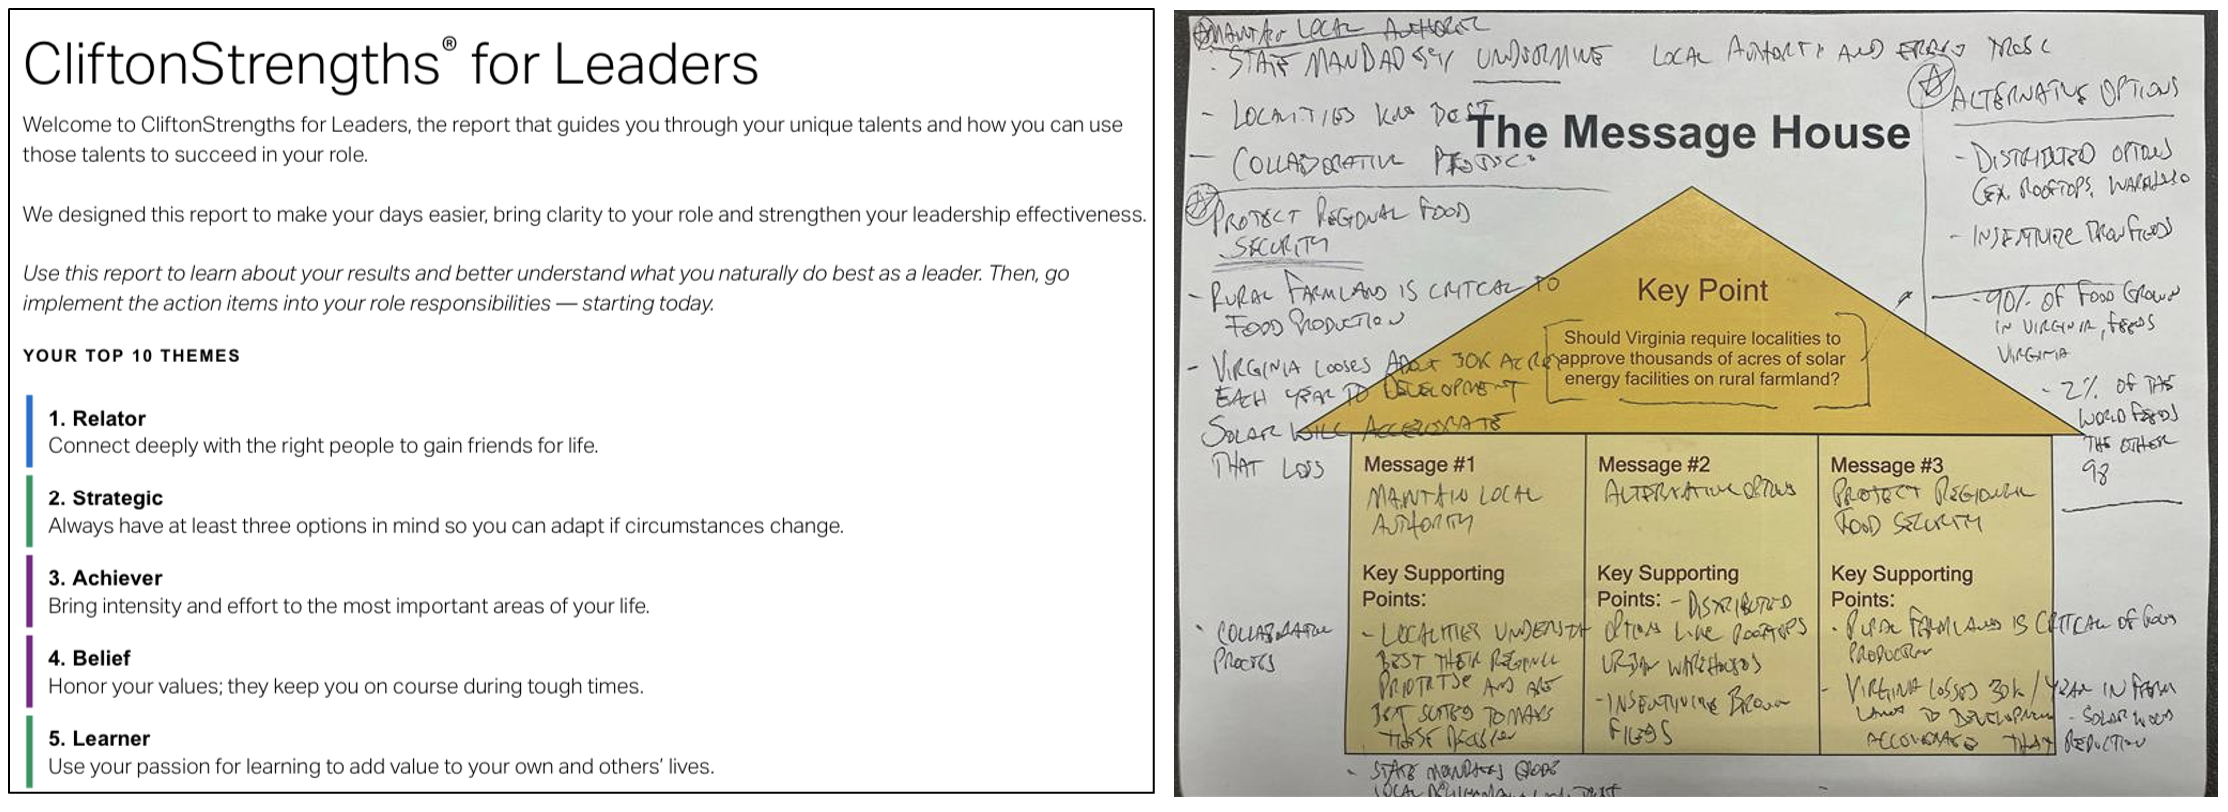 CliftonStrengths® for Leaders
Welcome to CliftonStrengths for Leaders, the report that guides you through your unique talents and how you can use
those talents to succeed in your role.
We designed this report to make your days easier, bring clarity to your role and strengthen your leadership effectiveness.
Use this report to learn about your results and better understand what you naturally do best as a leader. Then, go
implement the action items into your role responsibilities — starting today.
YOUR TOP 10 THEMES
1. Relator
Connect deeply with the right people to gain friends for life.
2. Strategic
Always have at least three options in mind so you can adapt if circumstances change.
3. Achiever
Bring intensity and effort to the most important areas of your life.
4. Belief
Honor your values; they keep you on course during tough times.
5. Learner
Use your passion for learning to add value to your own and others' lives.
LOCAL
STATE UNDERMINE LOCAL AUTHORITY AND
- LOCALITIES BEST
- COLLABORATIVE
The Message House
ALTERNATIVE OPTIONS
- DISTRIBUTED OPTIONS
(EX. ROOFTOPS,
-
- 90% OF FOOD GROWN
IN VIRGINIA, FEEDS
VIRGINIA
- 2% OF THE
WORLD FEEDS
THE OTHER
98
PROTECT REGIONAL FOOD
SECURITY
- RURAL FARMLAND IS CRITICAL TO
FOOD PRODUCTION
- VIRGINIA LOOSES ABOUT 30K ACRES
EACH YEAR TO DEVELOPMENT
SOLAR WILL ACCELERATE
THAT LOSS
Key Point
Should Virginia require localities to
approve thousands of acres of solar
energy facilities on rural farmland?
Message #1
MAINTAIN LOCAL
AUTHORITY
Key Supporting
Points:
- LOCALITIES
BEST THEIR
AND ARE
BEST SUITED TO MAKE
THESE DECISION
COLLABORATIVE
PROCESS
STATE MANDATES ERODE
LOCAL
Message #2
ALTERNATIVE OPTIONS
Key Supporting
Points: - DISTRIBUTED
OPTIONS LIKE ROOFTOPS
URBAN WAREHOUSES
- BROWN
FIELDS
Message #3
PROTECT REGIONAL
FOOD SECURITY
Key Supporting
Points:
- RURAL FARMLAND IS CRITICAL OF FOOD
PRODUCTION
- VIRGINIA 30K / YEAR IN FARM
TO DEVELOPMENT - SOLAR
THAT REDUCTION